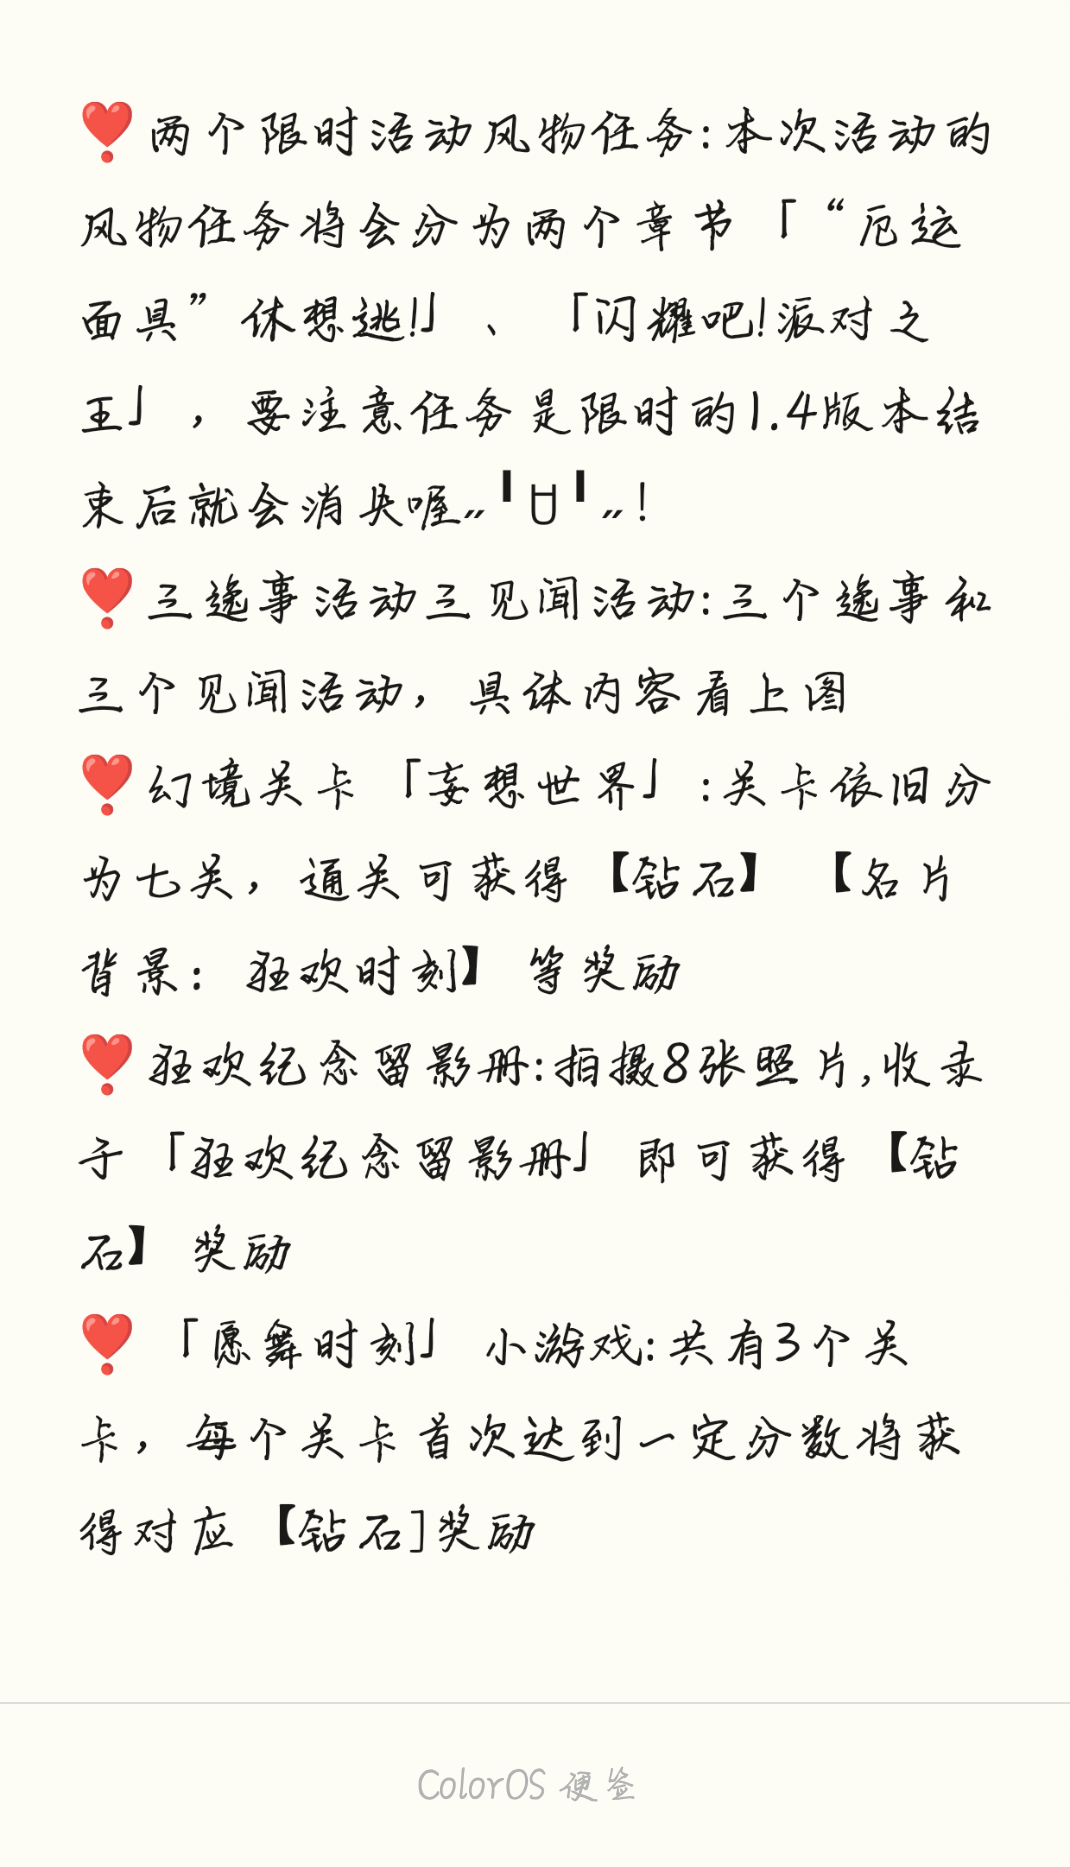 ❣️两个限时活动风物任务:本次活动的
风物任务将会分为两个章节「“厄运
面具”休想逃!」、「闪耀吧!派对之
王」，要注意任务是限时的1.4版本结
束后就会消失喔〃╹ꇴ╹〃!
❣️三逸事活动三见闻活动:三个逸事和
三个见闻活动，具体内容看上图
❣️幻境关卡「妄想世界」:关卡依旧分
为七关，通关可获得【钻石】【名片
背景：狂欢时刻】等奖励
❣️狂欢纪念留影册:拍摄8张照片,收录
于「狂欢纪念留影册」即可获得【钻
石】奖励
❣️「愿舞时刻」小游戏:共有3个关
卡，每个关卡首次达到一定分数将获
得对应【钻石]奖励
ColorOS 便签